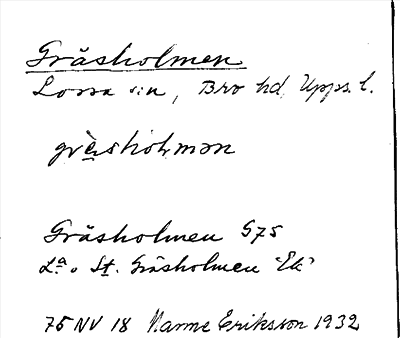 Gräsholmen
Lossa sn, Bro hd, Upps. l.
grèshòlmən
Gräsholmen G75
La. o St. Gräsholmen "Ek"
75 NV 18 Manne Eriksson 1932